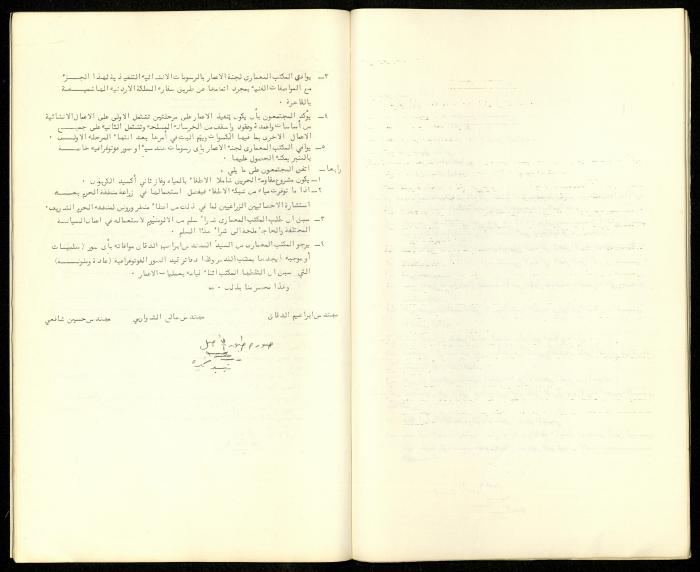 ٣ــ يوافي المكتب المعماري لجنة الاعمار بالرسومات الانشائية التنفيذية لهذا الجــزء
مع المواصفات الفنية بمجرد اتمامها عن طريق سفارة المملكة الاردنية الهاشميــة
بالقاهرة ٠
٤ــ يؤكد المجتمعون بأن يكون تنفيذ الاعمار على مرحلتين تشتمل الاولى على الاعمال الانشائية
من أساسات واعمدة وعقود واسقف من الخرسانة المسلحة وتشتمل الثانية على جميــع
الاعمال الاخرى بما فيها الكسوات ويتم البت في أمرها بعد انتهاء المرحلة الاولــى ٠
٥ــ يوافي المكتب المعماري لجنة الاعمار بأى رسومات هندسية أو صور فوتوغرافية خاصــة
بالمنبر يمكنه الحصول عليها ٠
رابعاــ اتفق المجتمعون على ما يلي ٠
١ــ يكون مشروع مقاومة الحريق شاملا الاطفاء بالمياه وغاز ثاني أكسيد الكربون ٠
٢ــ اذا ما توفرت مياه من شبكة الاطفاء فيفضل استعمالها في زراعة منطقة الحرم بعــد
استشارة الاخصائيين الزراعيين لما في ذلك من اضفاء منظر وروس لمنطقة الحرم الشريف٠
٣ــ سبق أن طلب المكتب المعماري شراء سلم من الالومنيوم لاستعماله في اعمال الصيانة
المختلفة والحاجة ملحة الى شراء هذا السلم ٠
٤ــ يرجو المكتب المعماري من السيد المهندس ابراهيم الدقاق موافاته بأى صور (سلبيات
أو موجبة ) يجدها بمكتب القدس وكذا دفاتر قيد الصور الفوتوغرافية (عادة وملونــة)
التي سبق أن التقطها المكتب اثناء قيامه بعمليــة الاعمار ٠
وهذا محضر منا بذلك ٠٠
مهندس ابراهيم الدقاق مهندس مأمن الشواربي مهندس حسين شافعي
صورة طبق الأصل